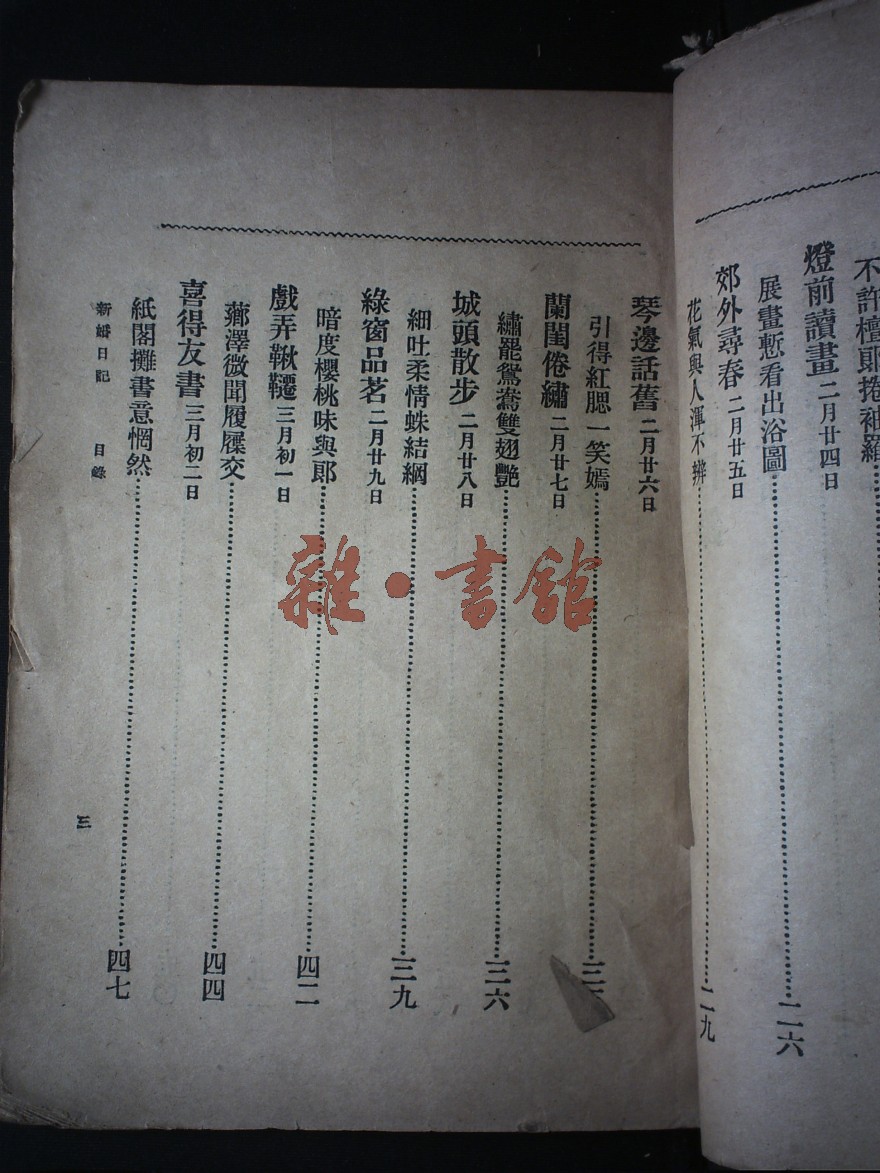 不許檀郎捲袖羅
燈前讀畫 二月廿四日
展畫慙看出浴圖……二六
郊外尋春 二月廿五日
花氣與人渾不辨……二九
琴邊話舊 二月廿六日
引得紅腮一笑嫣……三
蘭閨倦繡 二月廿七日
繡罷鴛鴦雙翅艷……三六
城頭散步 二月廿八日
細吐柔情蛛結網……三九
綠窗品茗 二月廿九日
暗度櫻桃味與郎……四二
戲弄鞦韆 三月初一日
薌澤微聞履屧交……四四
喜得友書 三月初二日
紙閣攤書意惘然……四七
新婚日記 目錄
三
雜·書館